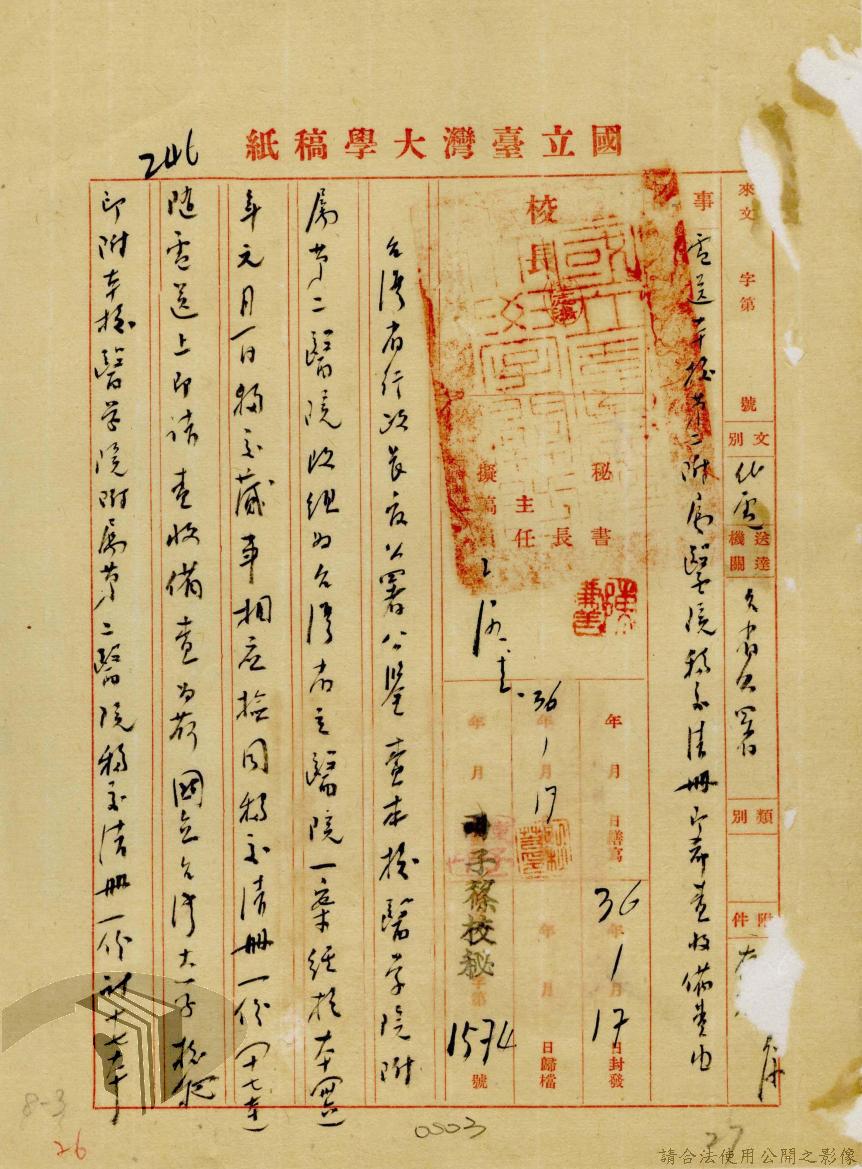 國立臺灣大學稿紙
246
來文 字第 號
文別 代電
送達機關 公署
類別
附件
事 電送本校第二附屬醫院移交清冊即希查收備查由
校長
秘書
主任
擬稿
年 月 日繕寫
36年1月17日封發
36年1月17日
年 月 日歸檔
子篠校秘
字第1574號
台灣省行政長官公署公鑒查本校醫學院附
屬第二醫院改組為台灣省立醫院一案經於本(卅六)
年元月一日移交蕆事相應檢同移交清冊一份(十七本)
隨電送上即請查收備查為荷國立台灣大子校秘
印附本校醫學院附屬第二醫院移交清冊一份計十七本
8-3
26
0003
27
請合法使用公開之影像